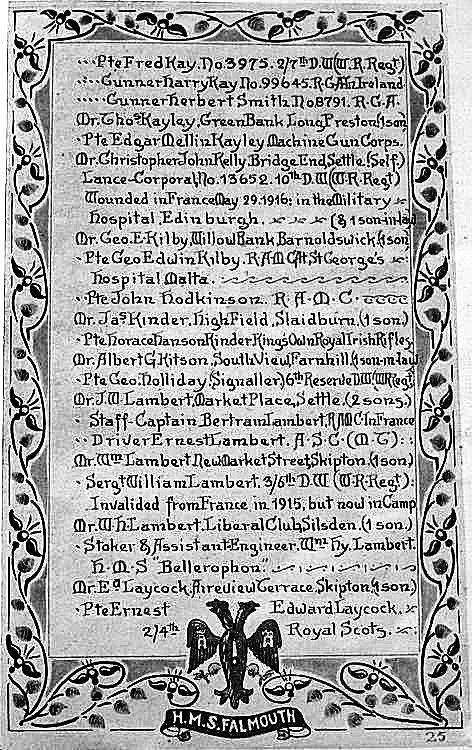 Pte Fred Kay. No. 3975. 2/7th D.W (W.R. Regt)
Gunner Harry Kay No 99645. R.G.A In Ireland
Gunner Herbert Smith. No 8791. R.G.A.
Mr. Thos Kayley, Green Bank Long Preston (1 son
Pte Edgar Mellin Kayley Machine Gun Corps.
Mr. Christopher John Kelly, Bridge End, Settle. (Self,)
Lance-Corporal, No. 13652. 10th D.W (W.R. Regt)
Wounded in France May 29. 1916; in the Military
Hospital, Edinburgh. (& 1 son-in-law
Mr. Geo. E. Kilby, Willow Bank, Barnoldswick, (1 son)
Pte Geo Edwin Kilby. R A M C At St George's
Hospital Malta.
Pte John Hodkinson. R. A. M. C.
Mr. Jas Kinder, High Field, Slaidburn. (1 son.)
Pte Horace Hanson Kinder Kings Own Royal Irish Rifles
Mr. Albert G. Kitson, South View, Farnhill, (1 son-in-law
Pte Geo. Holliday (Signaller) 6th Reserve D.W. (W R Regt)
Mr. J.W. Lambert, Market Place, Settle. (2 sons.)
Staff-Captain Bertram Lambert, R A M C In France
Driver Ernest Lambert. A. S. C. (M. T):
Mr. Wm Lambert New Market Street, Skipton. (1 son)
Sergt William Lambert. 3/6th D.W (W. R. Regt):
Invalided from France in 1915, but now in Camp
Mr. W.H. Lambert. Liberal Club, Silsden. (1 son.)
Stoker & Assistant Engineer. Wm Hy. Lambert.
H. M. S "Bellerophon."
Mr. Ed Laycock, Aireview Terrace, Skipton, (1 son)
Pte Ernest Edward Laycock.
2/4th Royal Scots.
H.M.S. FALMOUTH
25